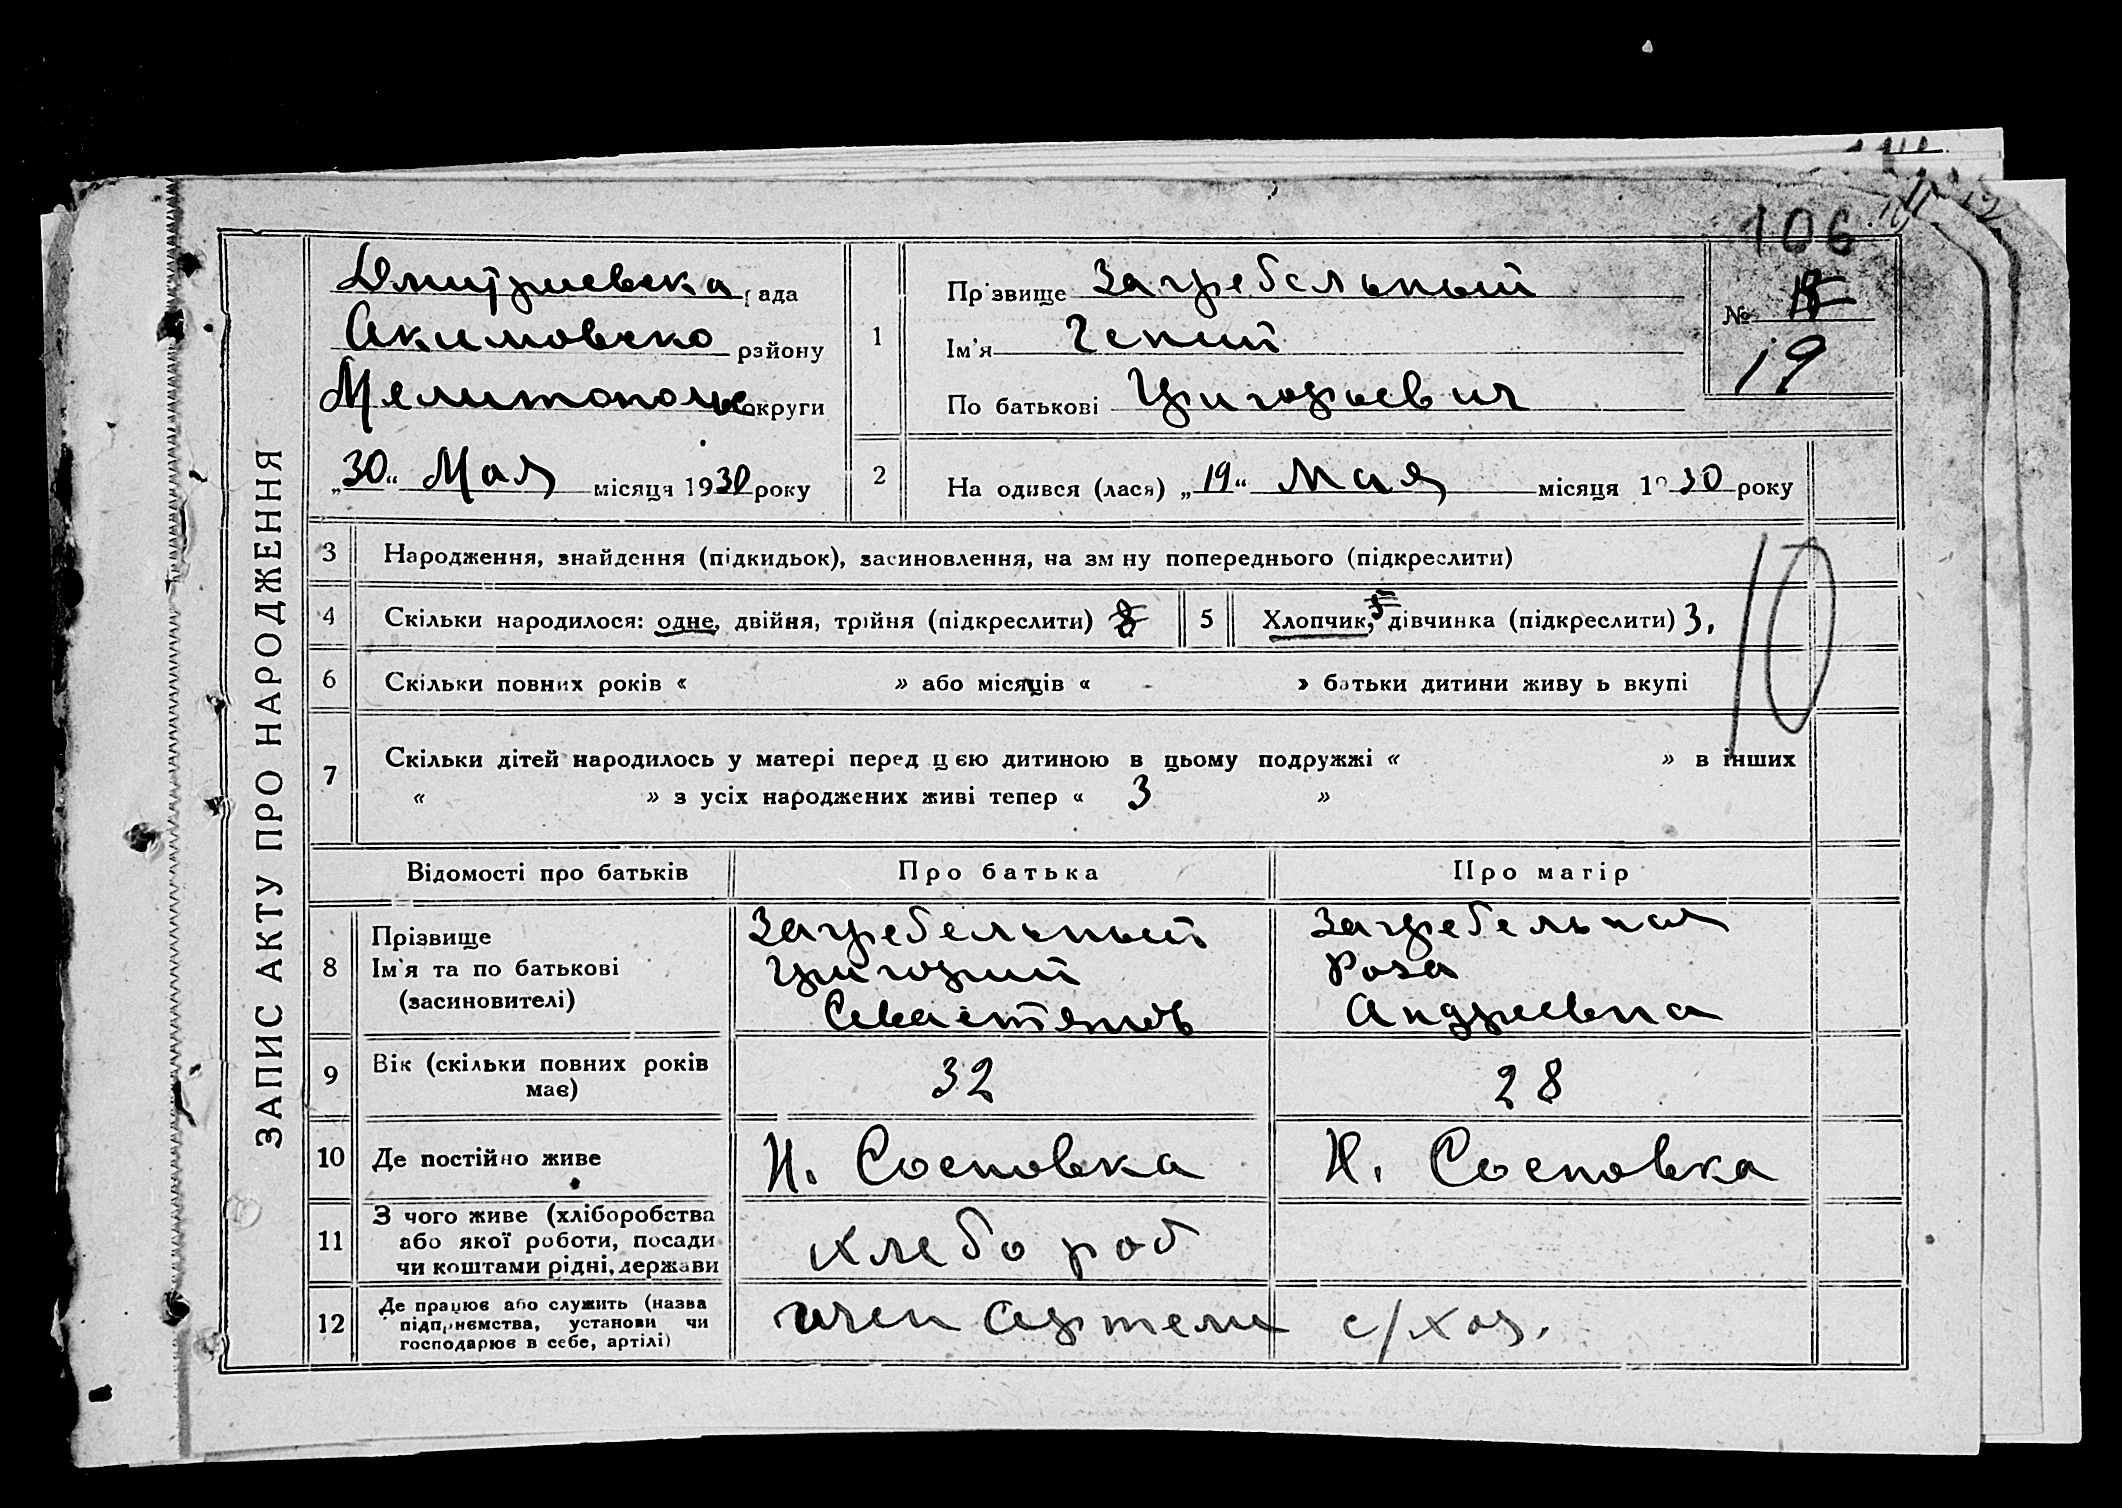 106
ЗАПИС АКТУ ПРО НАРОДЖЕННЯ
Дмитриевска рада
Акимовско району
Мелитополь округи
„30“ Мая місяця 1930 року
1
Прізвище Загребельный
Ім'я Гений
По батькові Григорьевич
№
19
2 На одився (лася) „19“ Мая місяця 19 30 року
3 Народження, знайдення (підкидьок), засиновлення, на зм ну попереднього (підкреслити)
4 Скільки народилося: одне, двійня, трійня (підкреслити)
5 Хлопчик, дівчинка (підкреслити) 3,
10
6 Скільки повних років « » або місяців « - » батьки дитини живу ь вкупі
7 Скільки дітей народилось у матері перед цією дитиною в цьому подружжі « » в інших
« » з усіх народжених живі тепер « 3 »
Відомості про батьків Про батька Про матір
8 Прізвище Загребельный Загребельная
Ім'я та по батькові Григорий Роза
(засиновителі) Андреевна
9 Вік (скільки повних років
має) 32 28
10 Де постійно живе Н. Сосновка Н. Сосновка
11 З чого живе (хліборобства
або якої роботи, посади хлебороб
чи коштами рідні, держави
12 Де працює або служить (назва
підприємства, установи чи член Артели с/хоз.
господарює в себе, артілі)